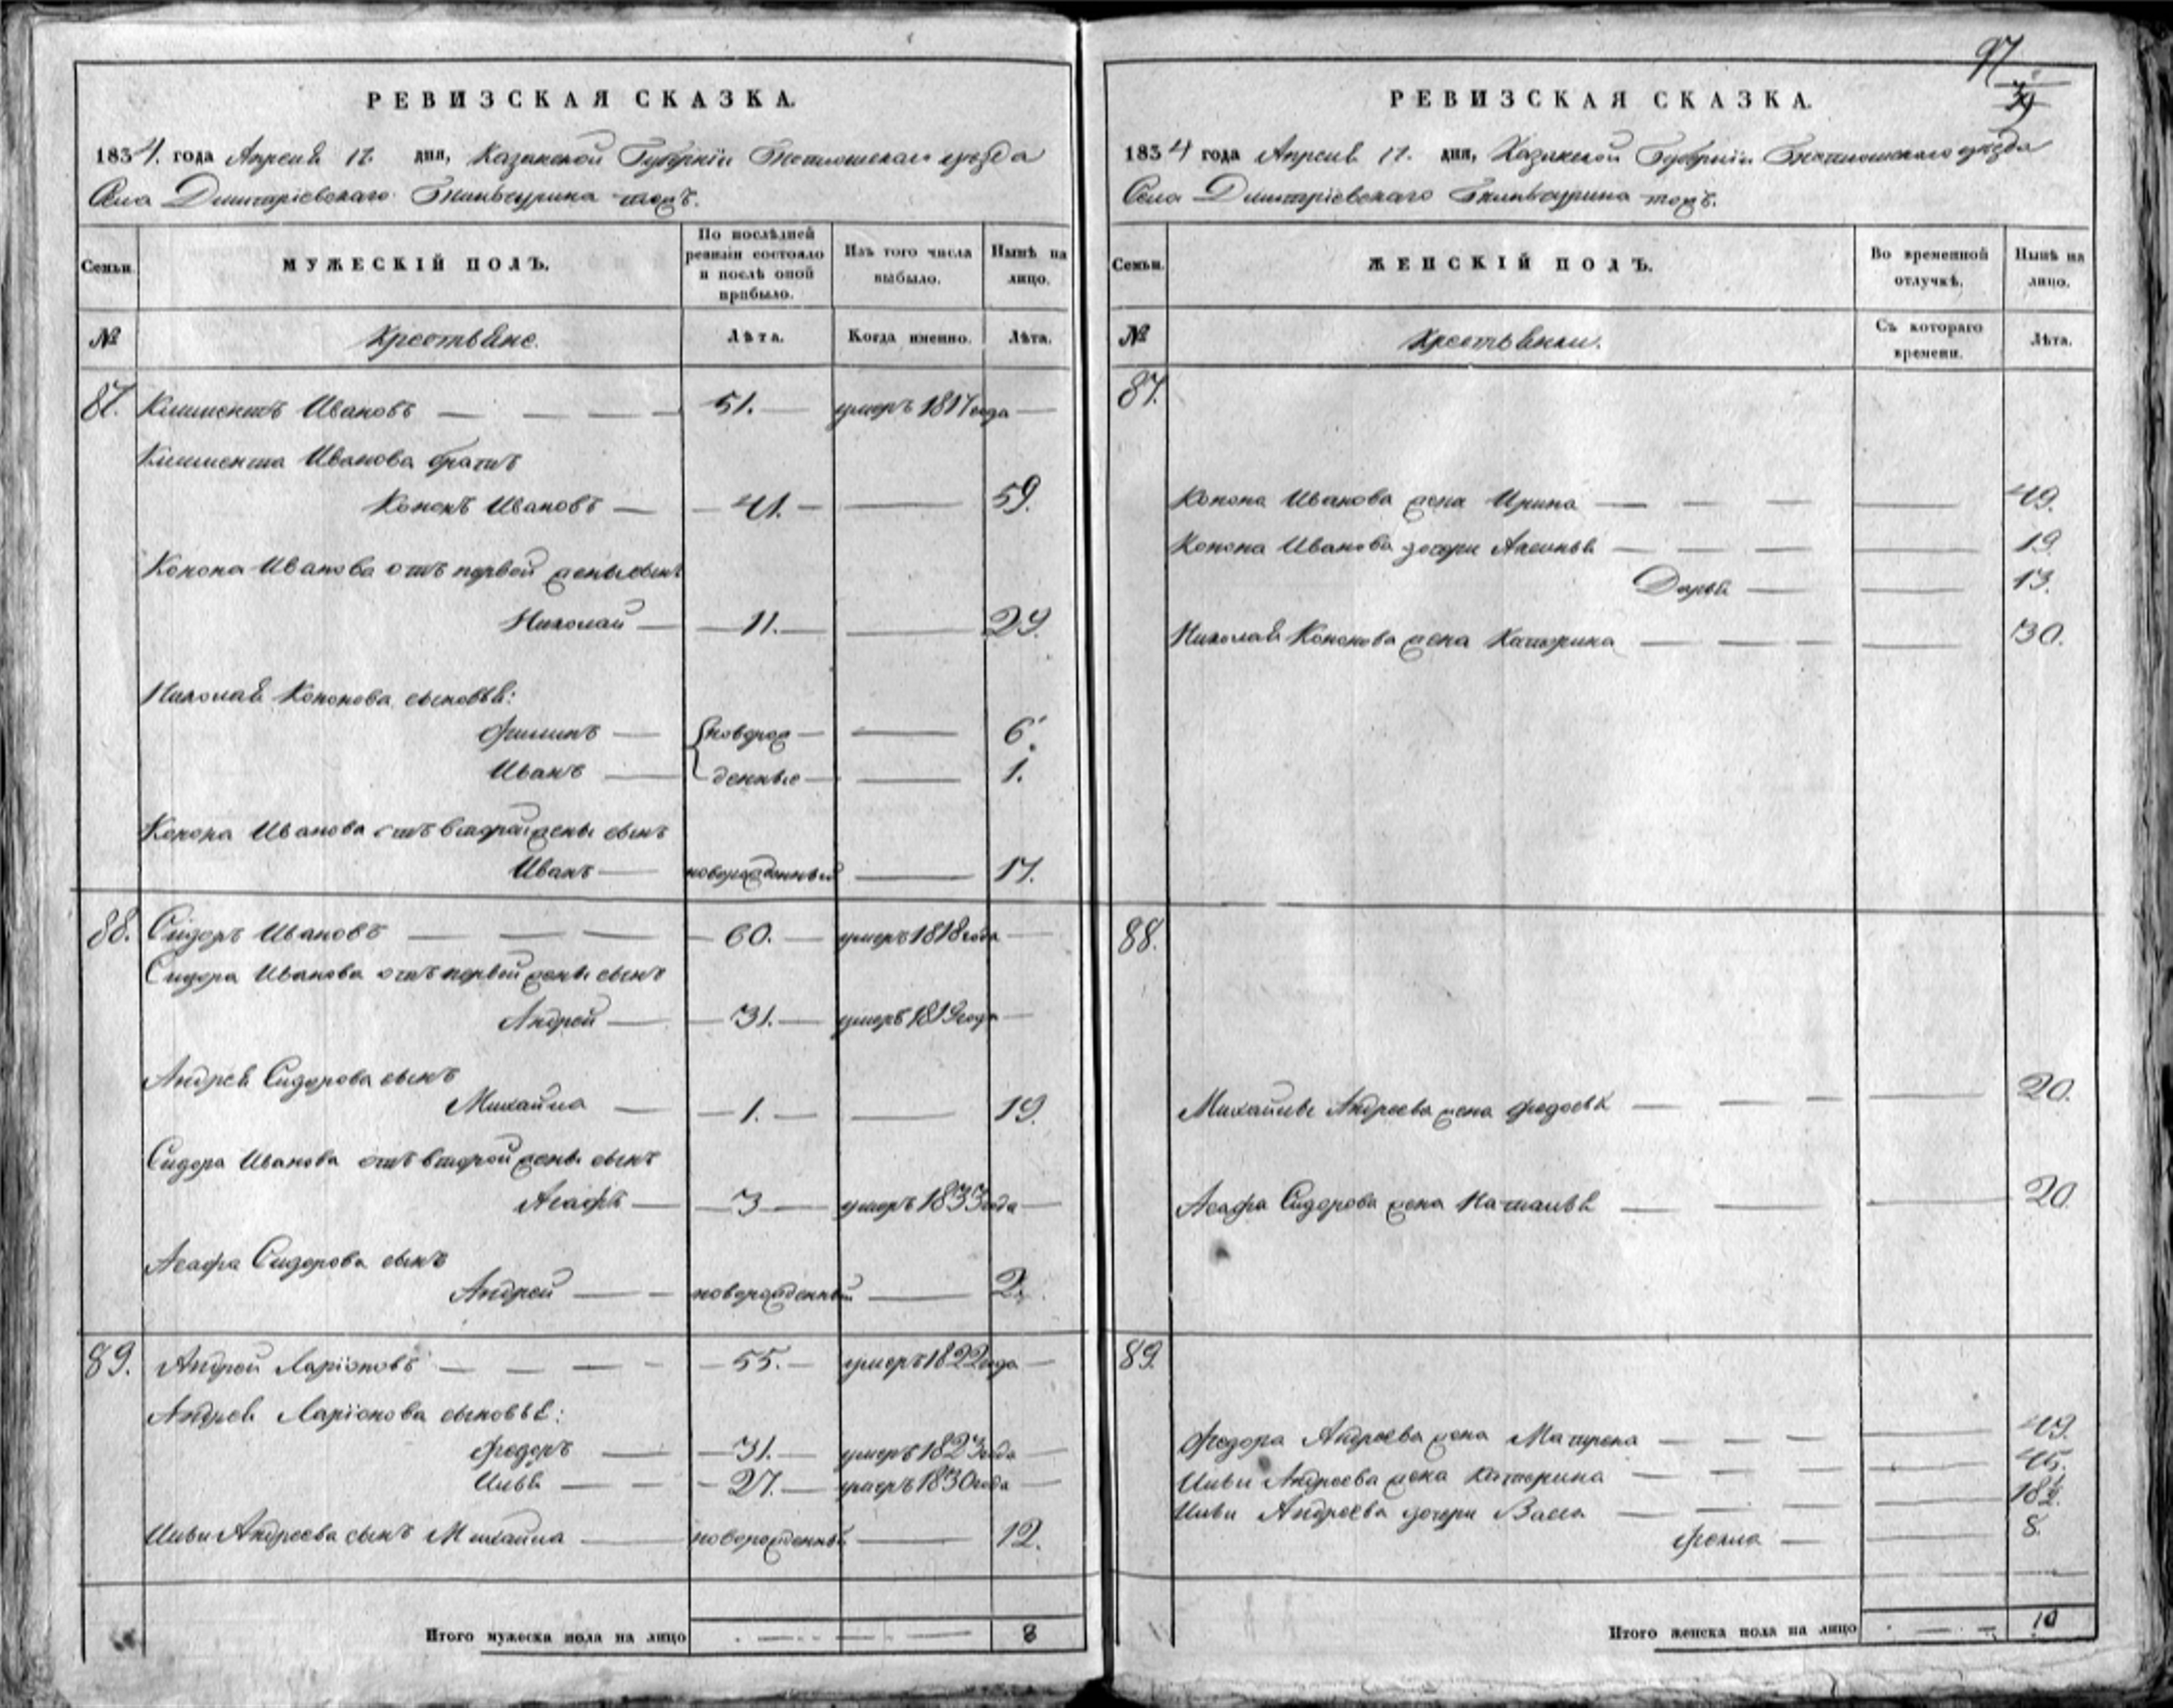 РЕВИЗСКАЯ СКАЗКА.
1834. года Апреля 17. дня, Казанской Губернiи уезда
Села Димитрiевскаго тожъ.
Семьи.
МУЖЕСКIЙ ПОЛЪ.
По послѣдней ревизiи состояло и послѣ оной прибыло.
Изъ того числа выбыло.
Нынѣ на лицо.
№
Крестьяне.
Лѣта.
Когда именно.
Лѣта.
87. Климентъ Ивановъ — 51. — умеръ 1817 года —
Климента Иванова братъ
Кононъ Ивановъ — 41. — — 59.
Конона Иванова отъ первой жены сынъ
Николай — 11. — — 29.
Николая Кононова сыновья:
Филипъ — новорож — — 6.
Иванъ — денные — — 1.
Конона Иванова отъ второй жены сынъ
Иванъ — новорожденный — 17.
88. Сидоръ Ивановъ — 60. — умеръ 1818 года —
Сидора Иванова отъ первой жены сынъ
Андрей — 31. — умеръ 1819 года —
Андрея Сидорова сынъ
Михайла — 1. — — 19.
Сидора Иванова отъ второй жены сынъ
Асафъ — 3 — умеръ 1833 года —
Асафа Сидорова сынъ
Андрей — новорожденный — 2.
89. Андрей Ларiоновъ — 55. — умеръ 1822 года —
Андрея Ларiонова сыновья:
Федоръ — 31. — умеръ 1823 года —
Илья — 27. — умеръ 1830 года —
Ильи Андреева сынъ Михайла — новорожденный — 12.
Итого мужеска пола на лицо 8
97
РЕВИЗСКАЯ СКАЗКА.
1834 года Апреля 17. дня, Казанской Губернiи уезда
Села Димитрiевскаго тожъ.
Семьи.
ЖЕНСКIЙ ПОЛЪ.
Во временной отлучкѣ.
Нынѣ на лицо.
№
Крестьянки.
Съ котораго времени.
Лѣта.
87.
Конона Иванова жена Ирина — — 49.
Конона Иванова дочери Аксинья — — 19.
Дарья — — 13.
Николая Кононова жена Катерина — — 30.
88.
Михайлы Андреева жена Федосья — — 20.
Асафа Сидорова жена Наталья — — 20.
89.
Федора Андреева жена Матрена — — 49.
Ильи Андреева жена Катерина — — 45.
Ильи Андреева дочери Васса — — 18½.
— — 8.
Итого женска пола на лицо 10